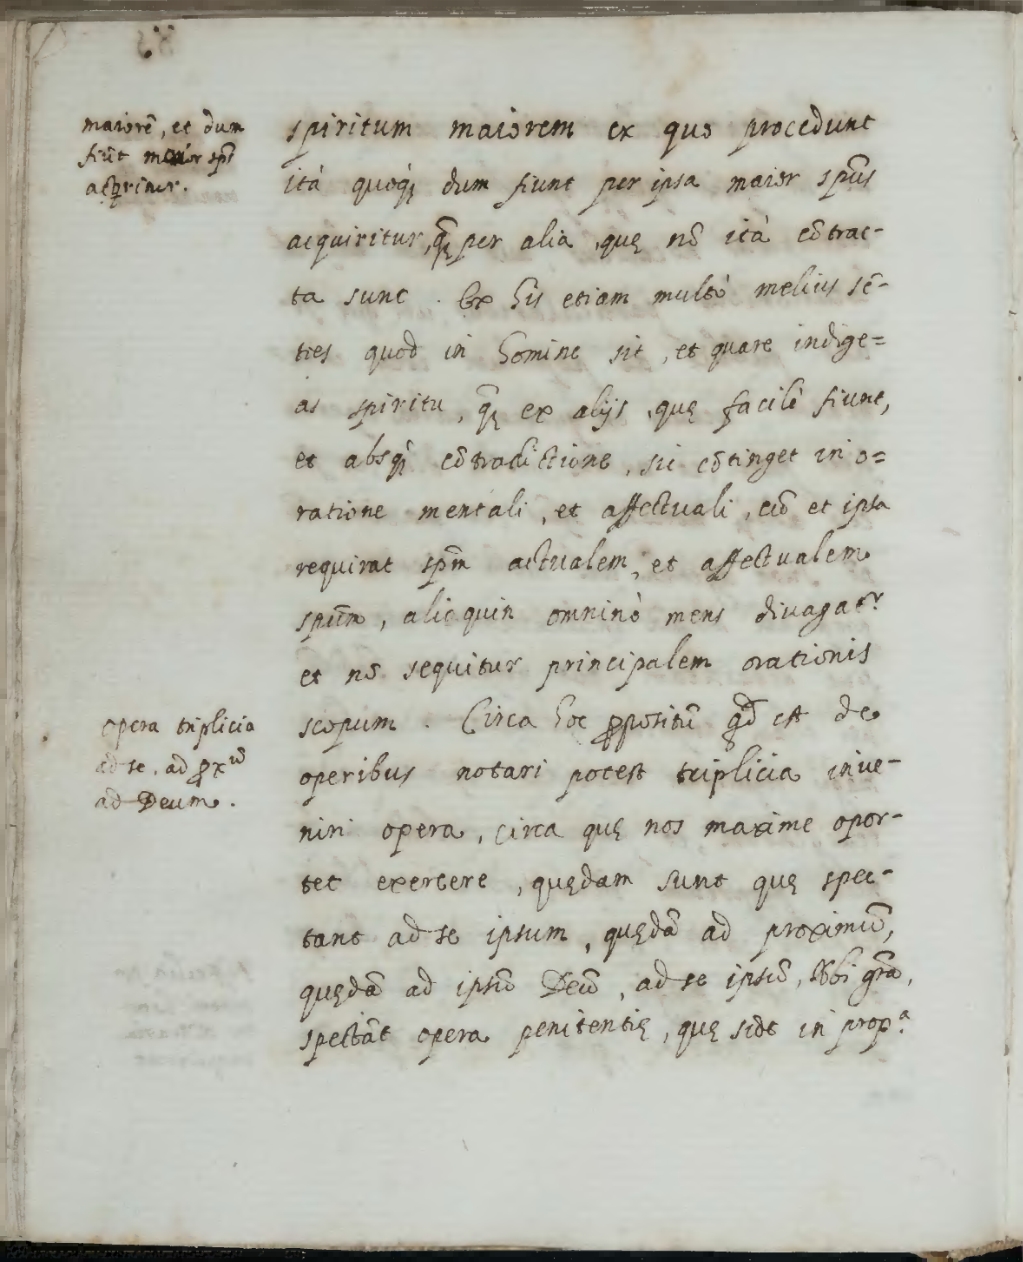 maiorē, et dum
fiūt maior spūs
acq̄ritur.
spiritum maiorem ex quo procedunt
ità quoq; dum fiunt per ipsa maior spūs
acquiritur, q̄ per alia, quę nō ità cōtrac-
ta sunt. Ex his etiam multò melius sē-
ties quod in homine sit, et quare indige=
as spiritu, q̄ ex alijs, quę facilè fiunt,
et absq; cōtradictione, sic cōtinget in o=
ratione mentali, et affectuali, cū et ipsa
requirat spm̄ actualem, et affectualem
spūm, alioquin omninò mens diuagatʳ
et nō sequitur principalem orationis
scopum. Circa hoc ꝓpositū qd̄ est de
operibus notari potest triplicia inue-
niri opera, circa quę nos maxime opor-
tet exercere, quędam sunt quę spec-
tant ad se ipsum, quędā ad proximū,
quędā ad ipsū Deū, ad se ipsū, grā,
spectāt opera penitentię, quę sūt in propª.
opera triplicia
ad se, ad ꝓxū
ad Deum.